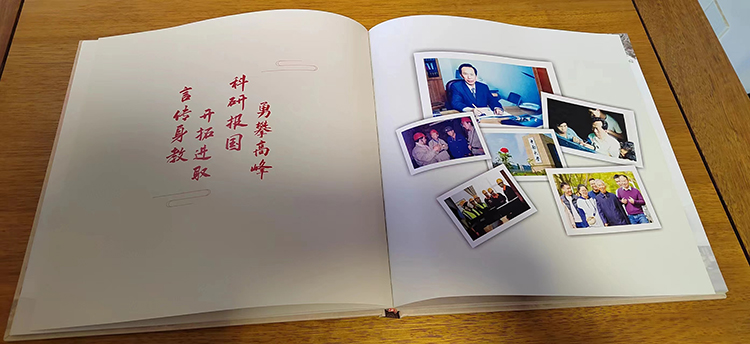 勇攀高峰
科研报国
开拓进取
言传身教